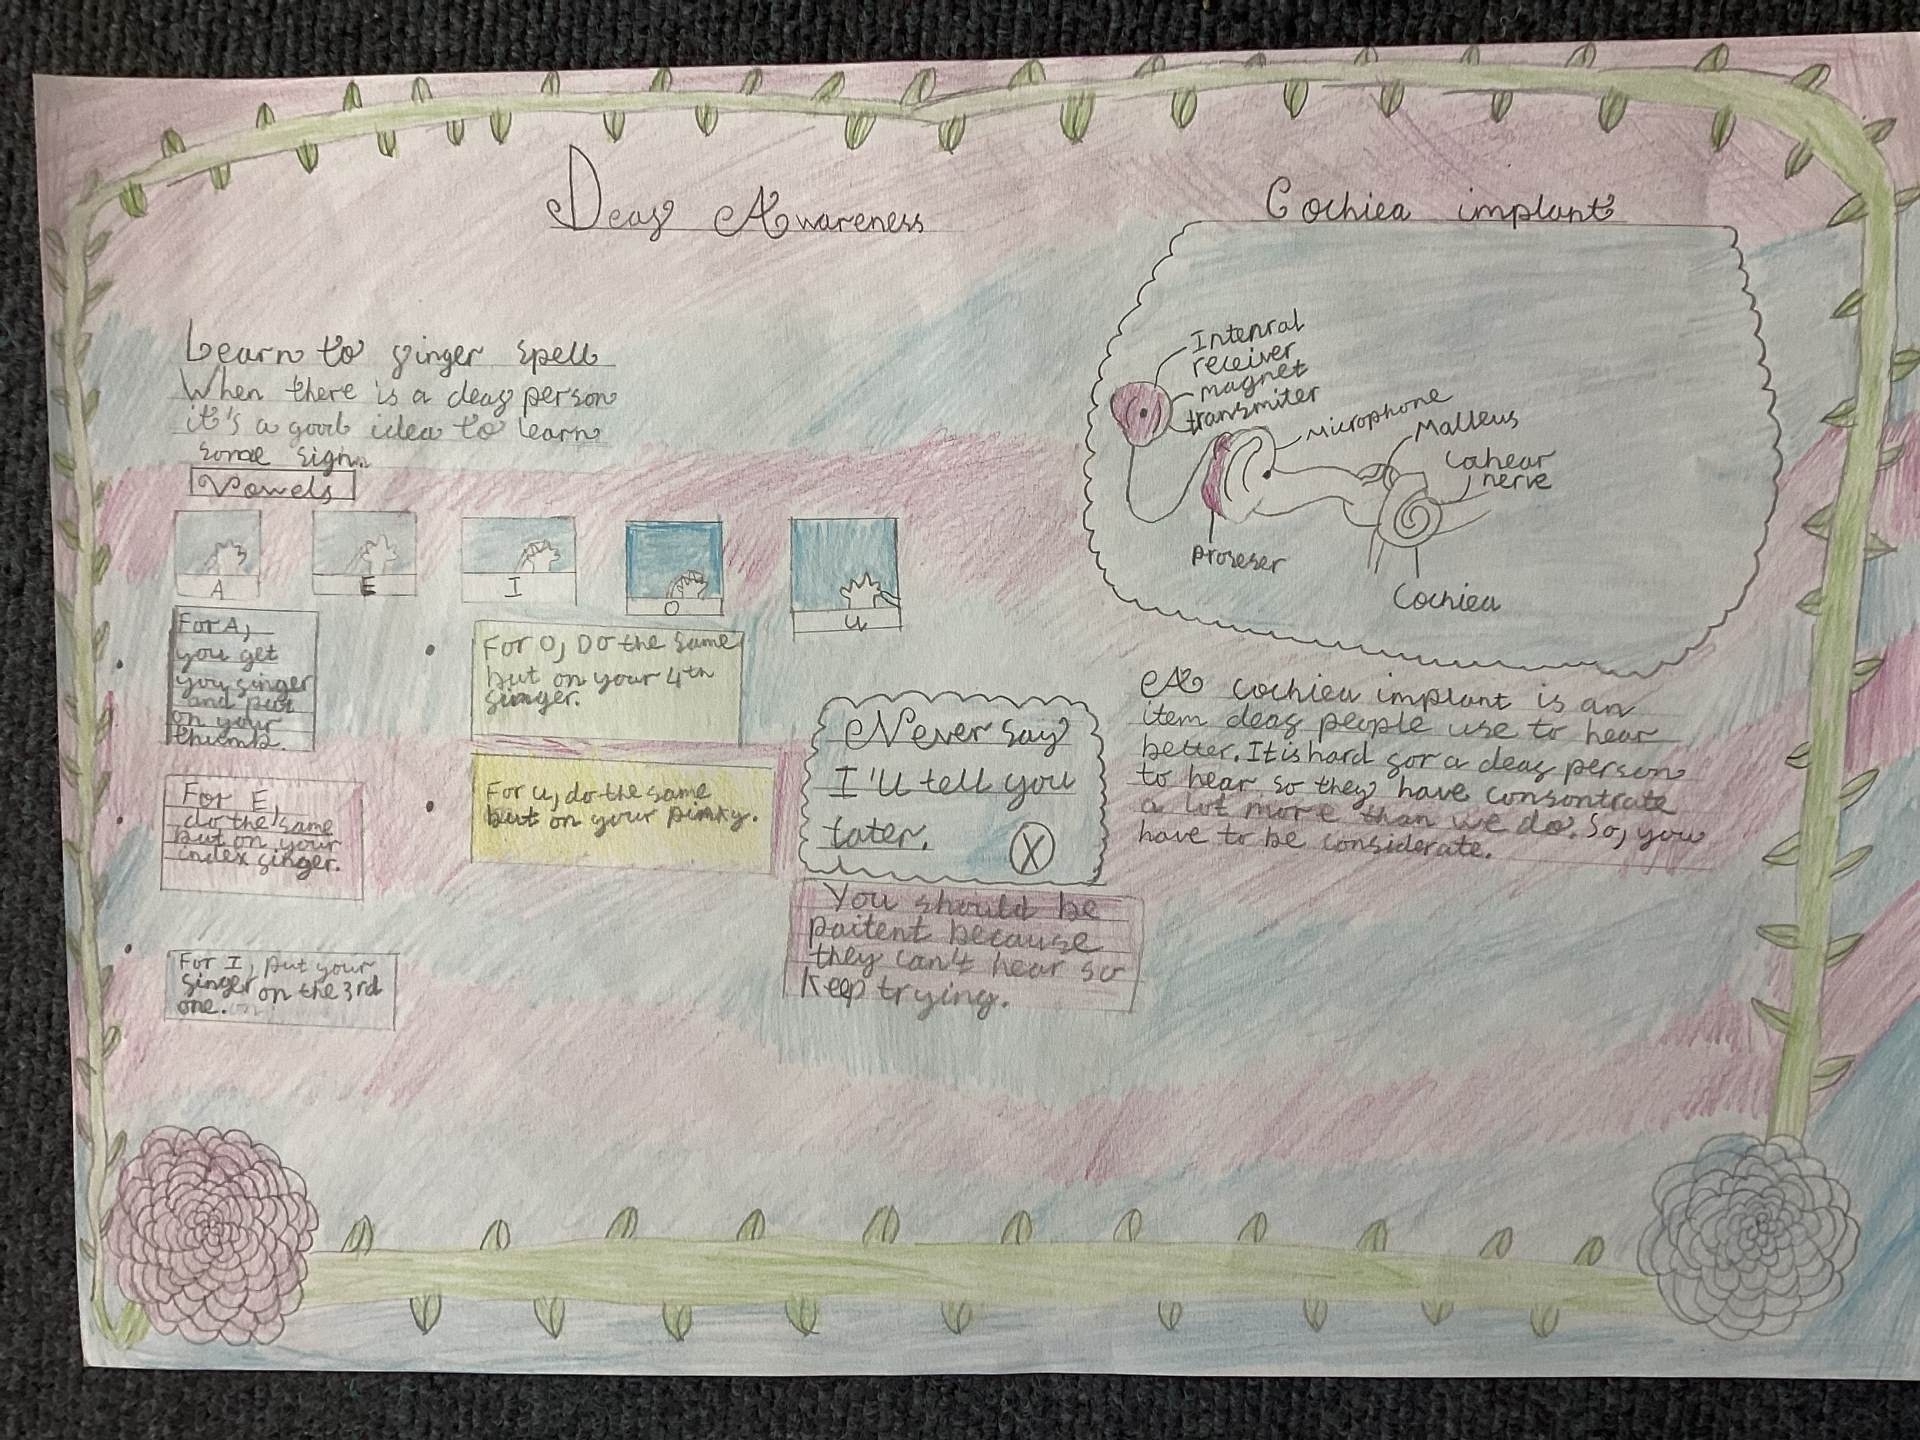 Deaf Awareness
Learn to finger spell
When there is a deaf person
it's a good idea to learn
some sign.
Vowels
A
E
I
O
U
For A,
you get
you finger
and put
on your
thumb.
For E,
do the same
but on your
index finger.
For I, put your
finger on the 3rd
one.
For O, Do the same
but on your 4th
finger.
For U, do the same
but on your pinky.
Never say
I'll tell you
later.
X
You should be
paitent because
they can't hear so
keep trying.
Cochlea implant
Intenral
receiver
magnet
transmiter
Microphone
Malleus
Cahear
nerve
Proseser
Cochlea
A cochlea implant is an
item deaf people use to hear
better. It is hard for a deaf person
to hear so they have consontrate
a lot more than we do. So, you
have to be considerate.